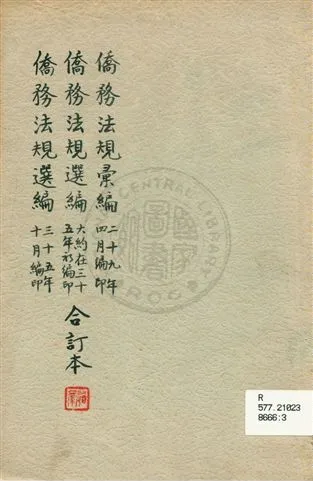 僑務法規彙編 二十九年
四月編印
僑務法規選編 大約在三十
五年初編印
僑務法規選編 三十五年
十月編印
合訂本
R
577.21023
8666:3